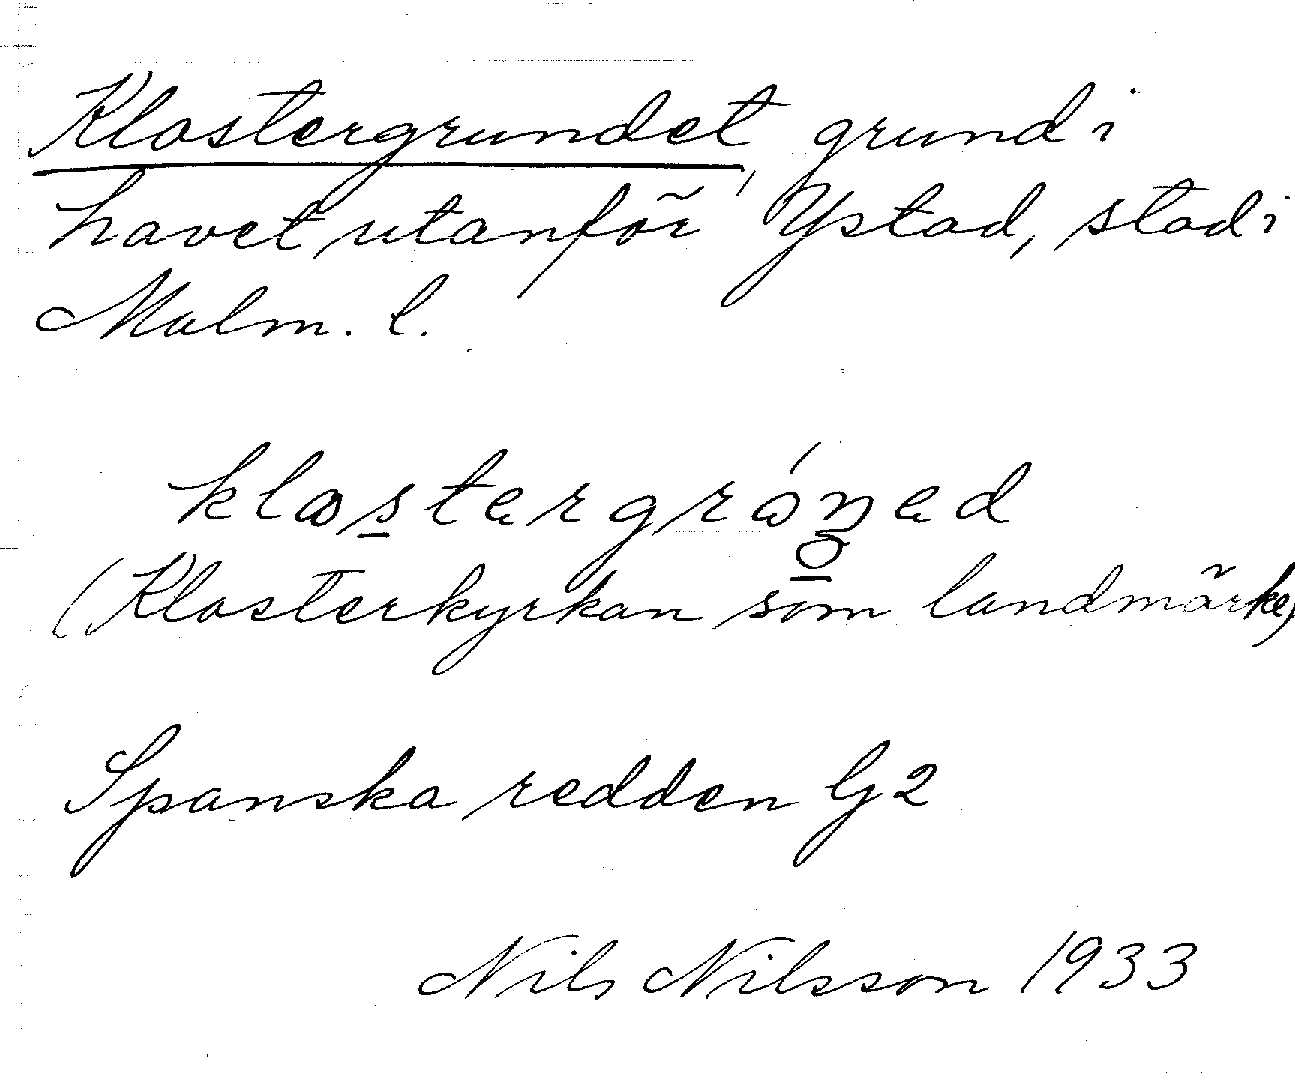 Klostergrundet, grund i
havet utanför Ystad, stad i
Malm. l.
klostergrón̥ed
(Klosterkyrkan som landmärke)
Spanska redden G2
Nils Nilsson 1933